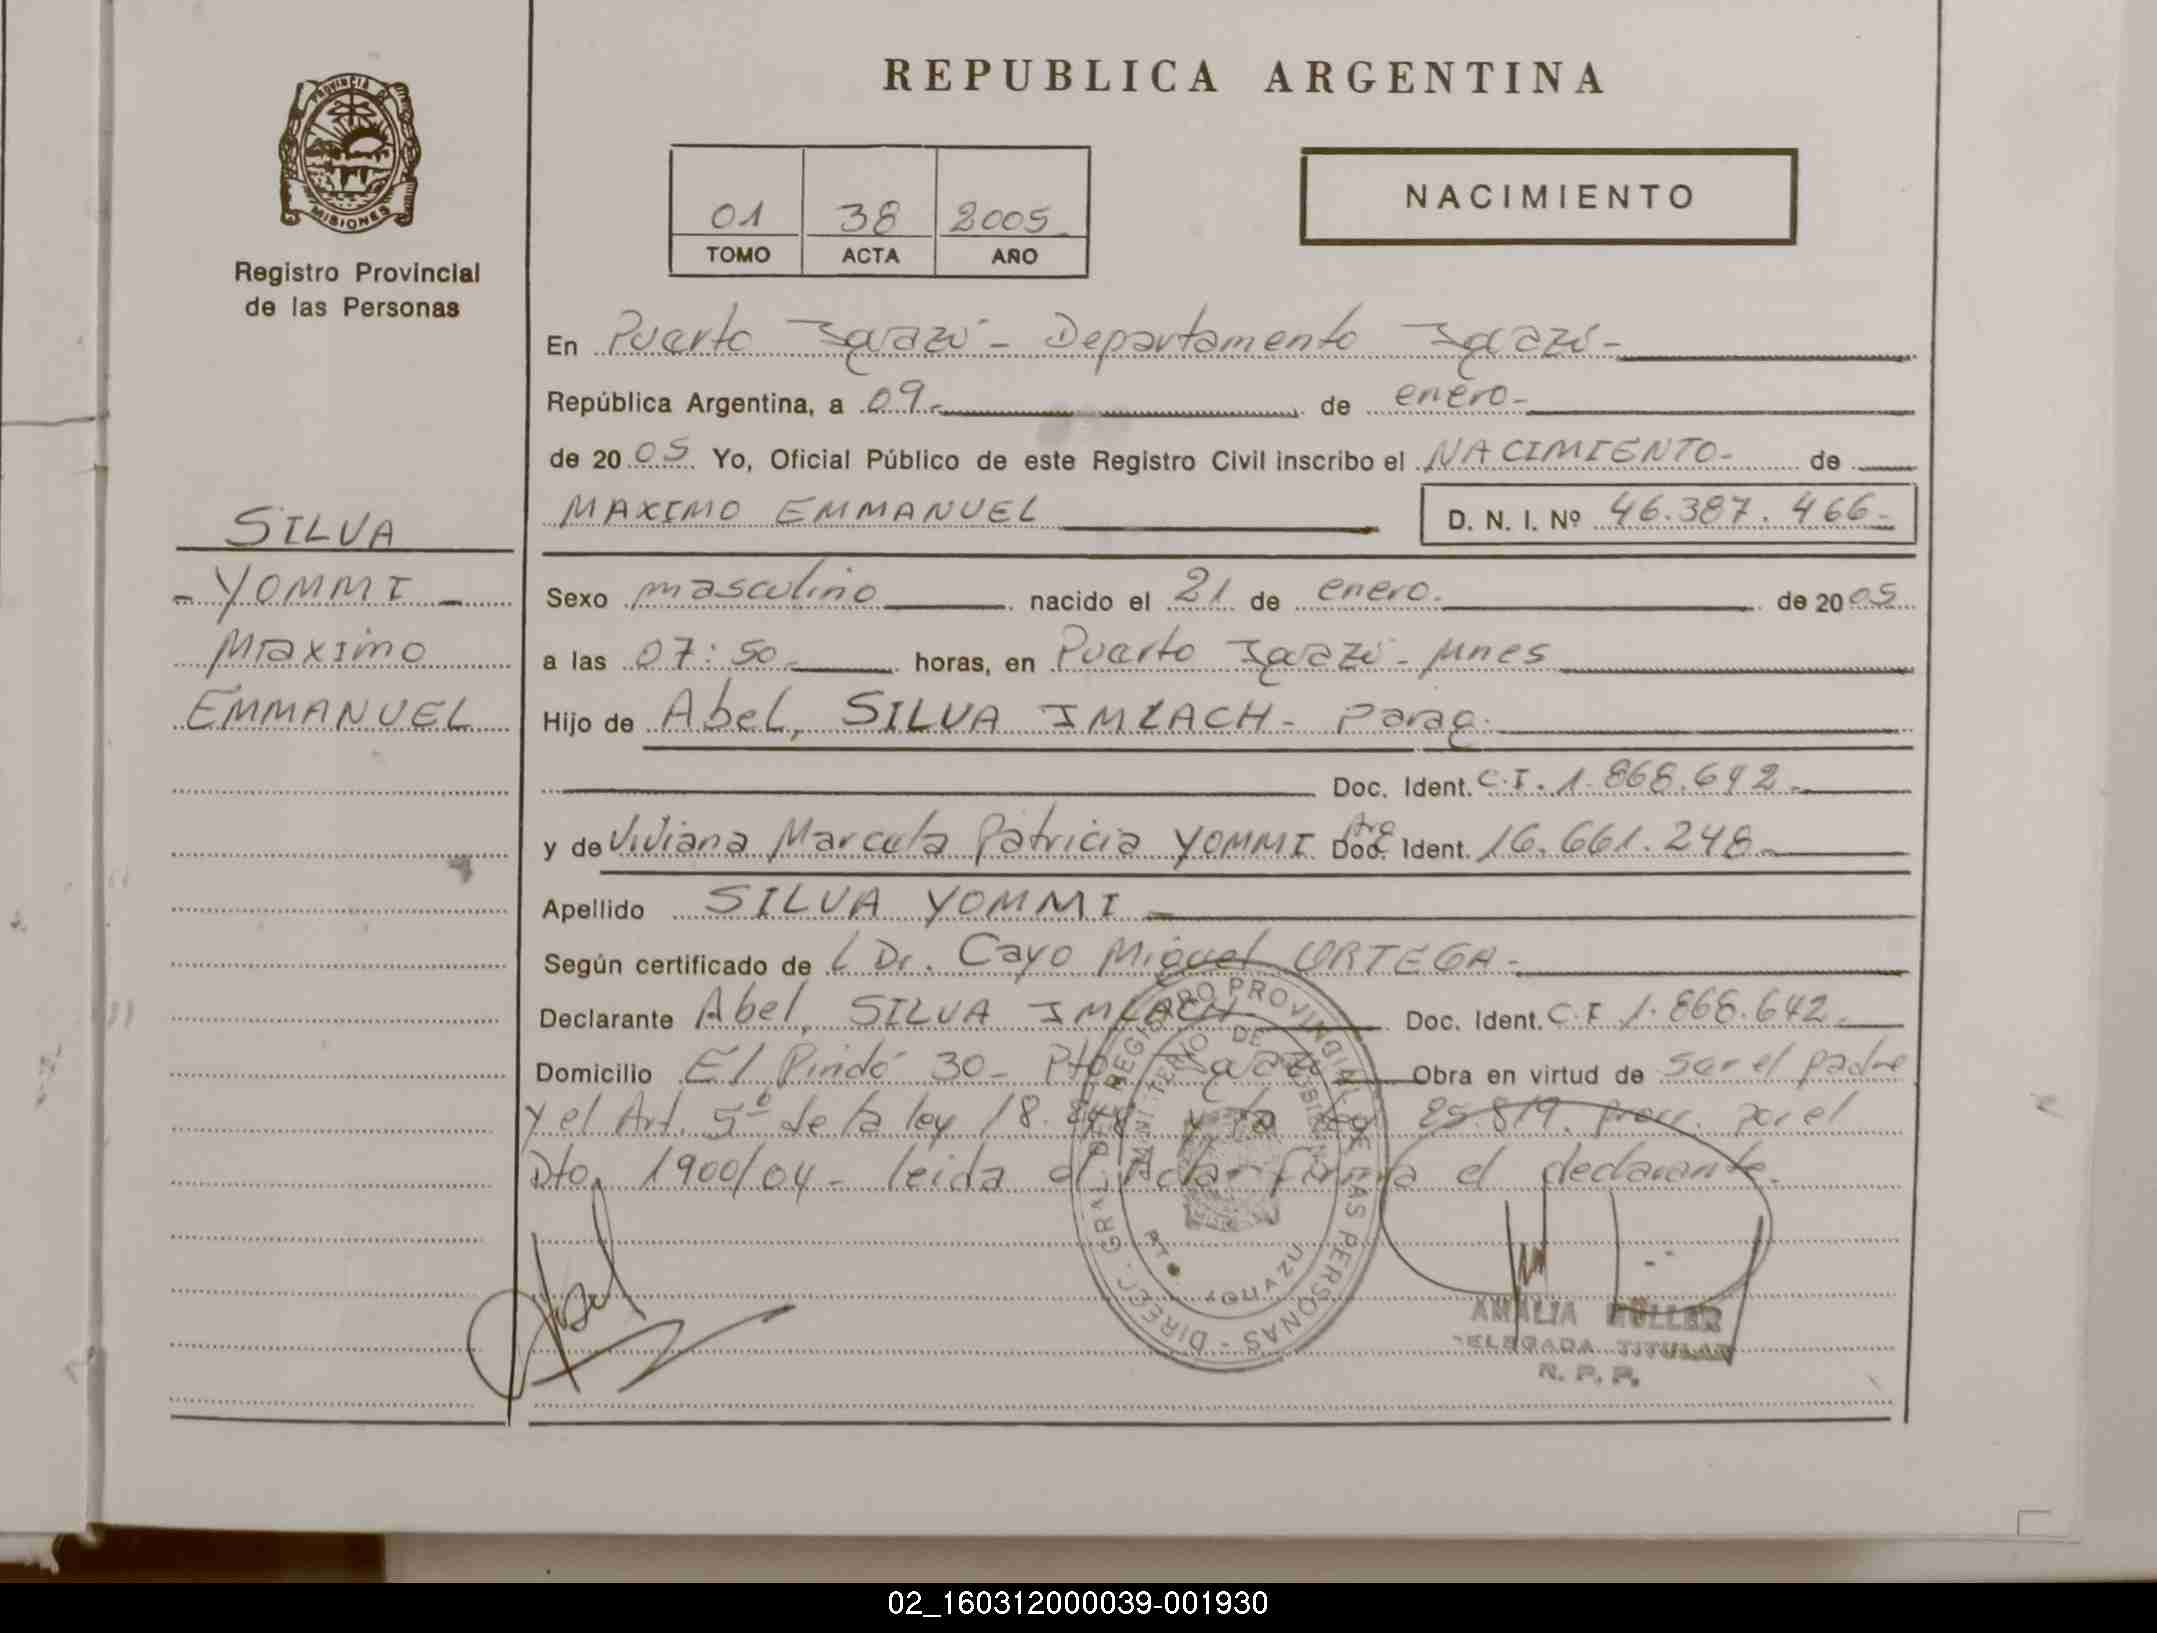 REPUBLICA ARGENTINA
PROVINCIA DE
MISIONES
Registro Provincial
de las Personas
01 38 2005
TOMO ACTA AÑO
NACIMIENTO
En Puerto Iguazú - Departamento Iguazú -
República Argentina, a 09.- de enero-
de 2005 Yo, Oficial Público de este Registro Civil inscribo el NACIMIENTO- de
MAXIMO EMMANUEL
D. N. I. Nº 46.387.466-
SILVA
- YOMMI -
Maximo
EMMANUEL
Sexo masculino nacido el 21 de enero. de 2005
a las 07:50- horas, en Puerto Iguazú - Mnes
Hijo de Abel, SILVA IMLACH- Parag.
Doc. Ident. C.I. 1.868.642-
y de Viviana Marcela Patricia YOMMI Arg Doc. Ident. 16.661.248-
Apellido SILVA YOMMI -
Según certificado de l Dr. Cayo Miguel ORTEGA-
Declarante Abel, SILVA IMLACH Doc. Ident. C.I 1.868.642-
Domicilio El Pindó 30- Pto Iguazú Obra en virtud de ser el padre
y el Art. 5º de la ley 18. y la ley 25.819. prorr. por el
Dto. 1900/04- leida el Acta firma el declarante.
DIREC. GRAL. DE REGISTRO PROVINCIAL DE LAS PERSONAS -
PTO. IGUAZU
Abel
AMALIA MULLER
DELEGADA TITULAR
R. P. P.
02_160312000039-001930